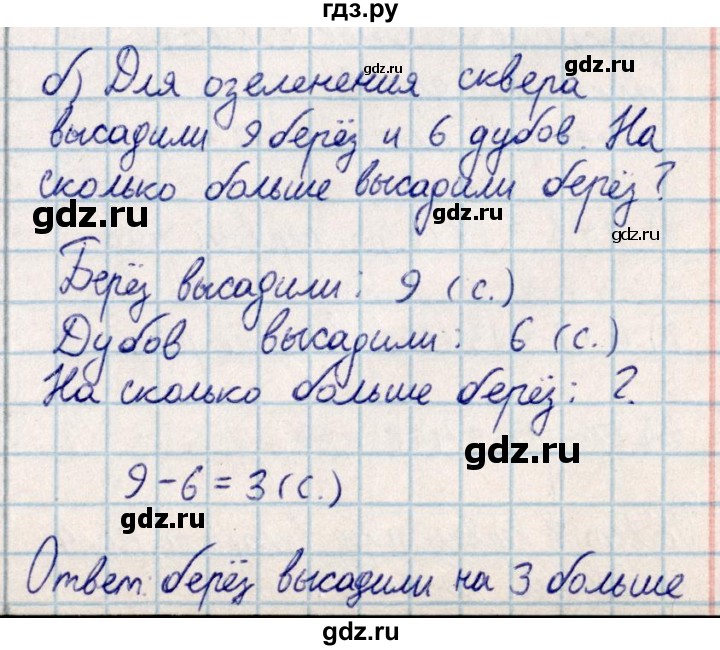 гдз.ру
б) Для озеленения сквера
высадили 9 берёз и 6 дубов. На
сколько больше высадили берёз?
Берёз высадили: 9 (с.)
Дубов высадили: 6 (с.)
На сколько больше берёз: ?.
9-6=3(с.)
Ответ: берёз высадили на 3 больше
gdz.ru
gdz.ru
gdz.ru
gdz.ru
gdz.ru
gdz.ru
gdz.ru